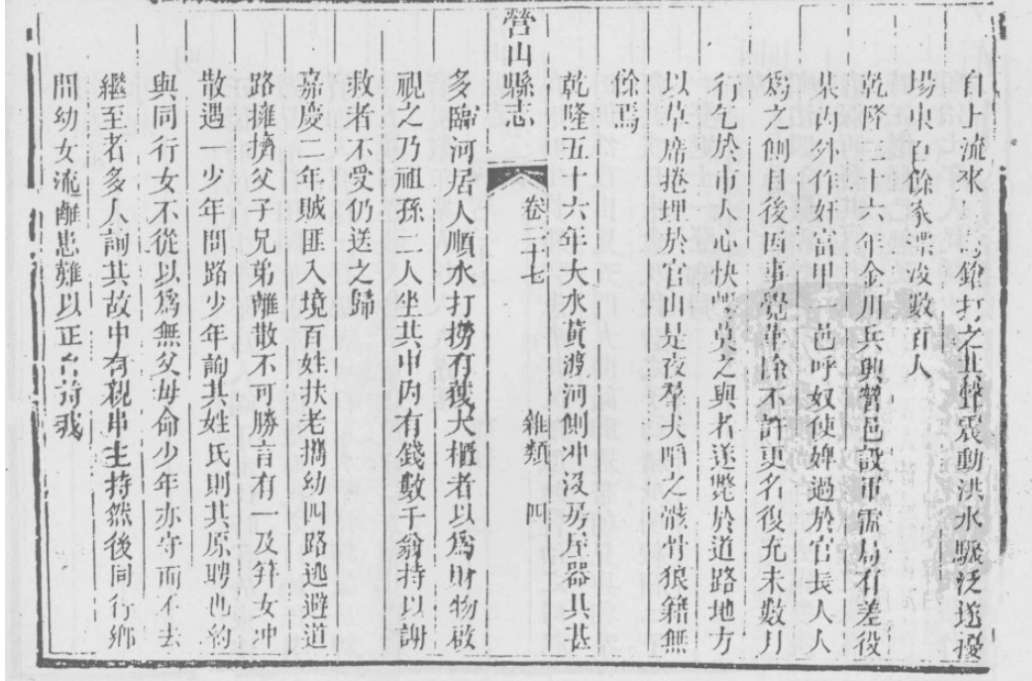 自上流來鎗打之其聲震動洪水驟泛遂
場東百餘家漂沒數百人
乾隆三十六年金川兵興營邑設軍需局有差役
某內外作奸富甲一邑呼奴使婢過於官長人人
為之側目後因事覺革除不許更名復充未數月
行乞於市人心快莫之與者遂斃於道路地方
以草席捲埋於官山是夜羣犬啗之骸骨狼籍無
餘焉
營山縣志
卷二十七
雜類
四
乾隆五十六年大水黃渡河側冲沒房屋器具甚
多臨河居人順水打撈有獲大櫃者以為財物啟
視之乃祖孫二人坐其中內有錢數千翁持以謝
救者不受仍送之歸
嘉慶二年賊匪入境百姓扶老攜幼四路逃避道
路擁擠父子兄弟離散不可勝言有一及笄女冲
散遇一少年問路少年詢其姓氏則其原聘也約
與同行女不從以為無父母命少年亦守而不去
繼至者多人詢其故中有親串主持然後同行鄉
間幼女流離患難以正自